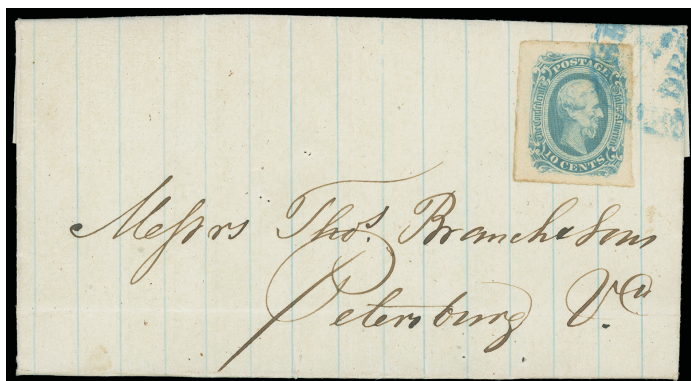 POSTAGE
The Confederate States of America
10 CENTS
Messrs Thos. Branch & Sons
Petersburg Va